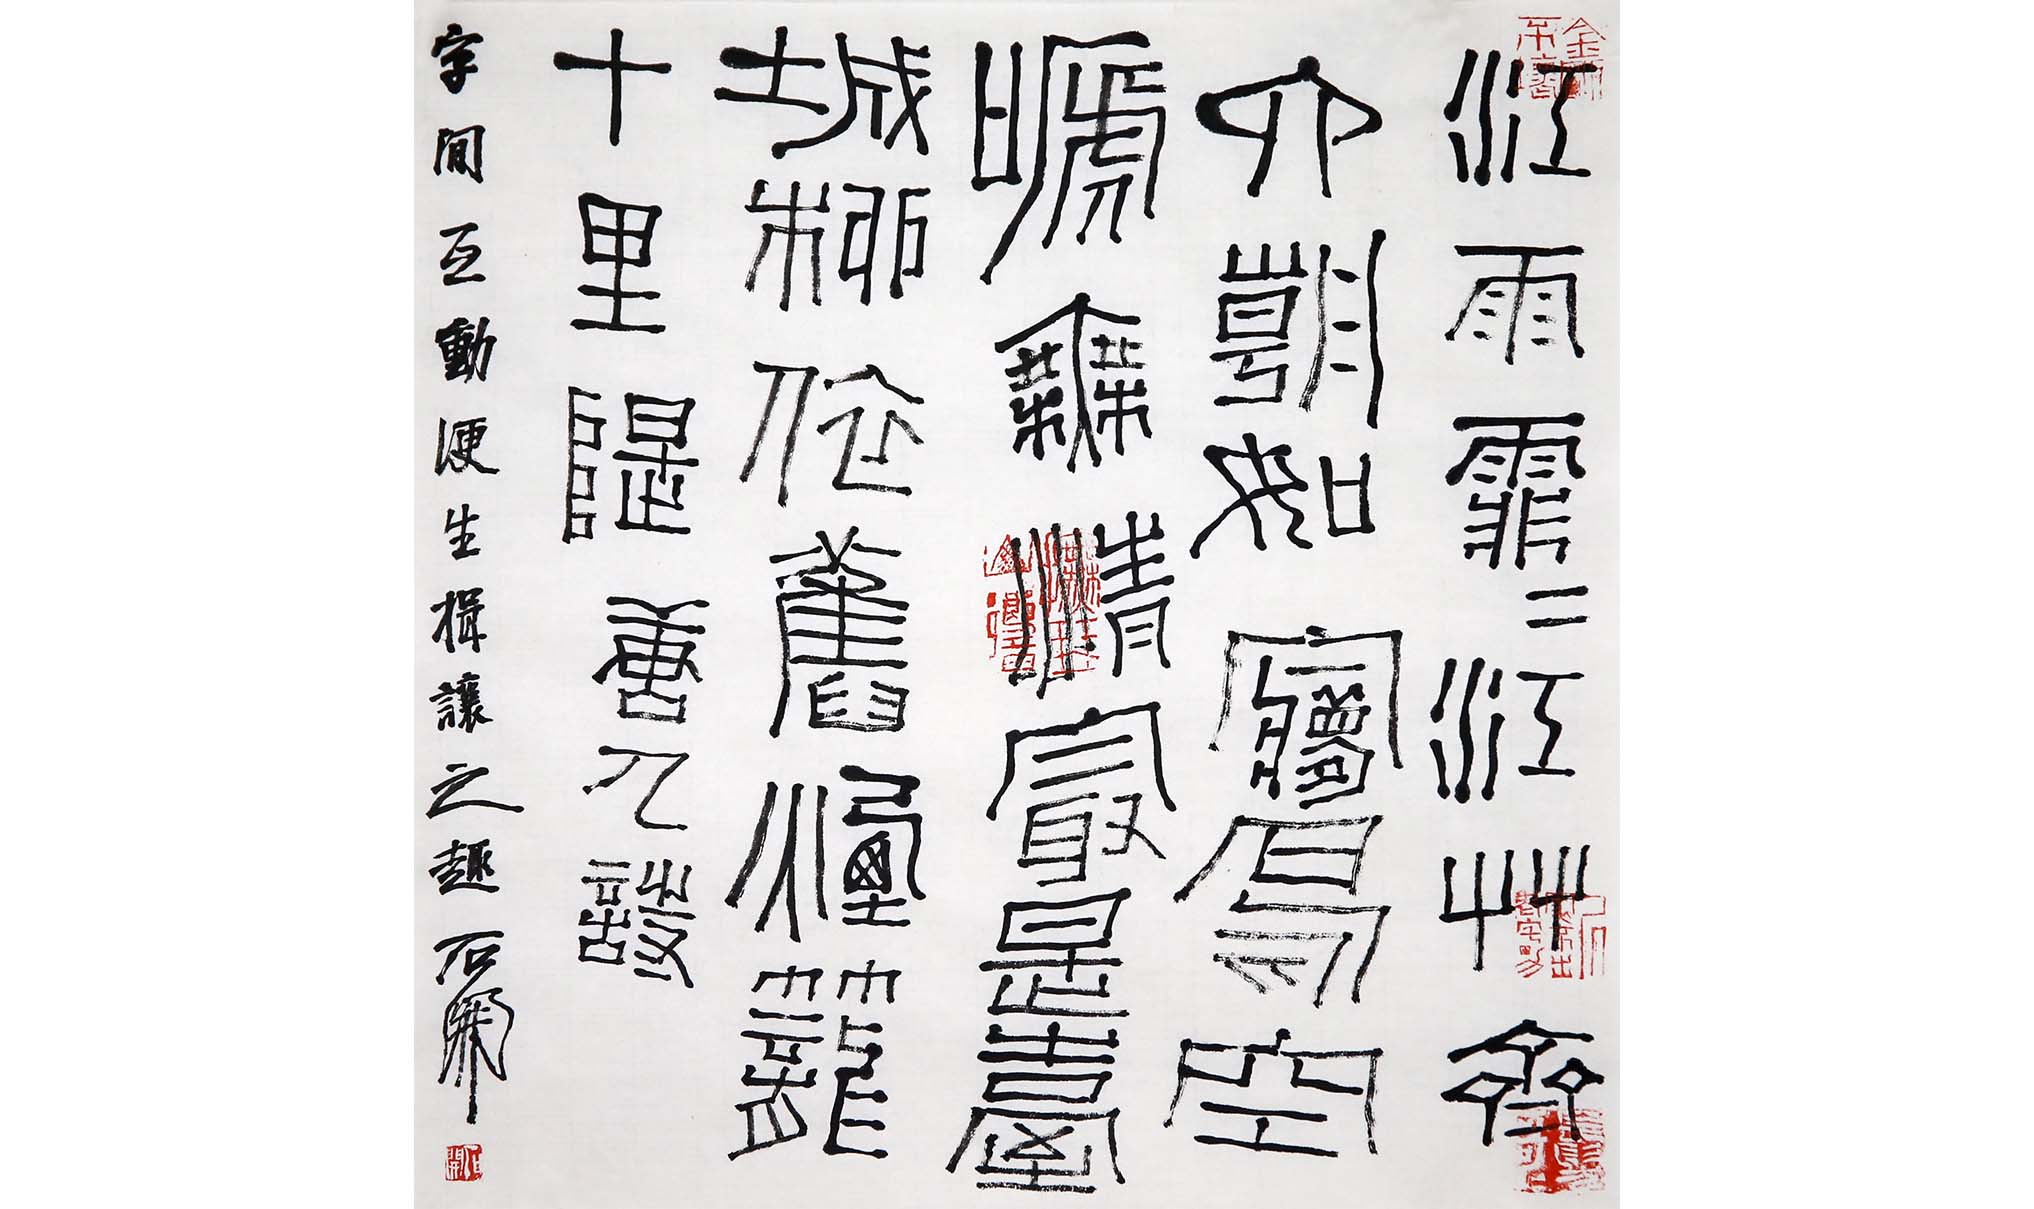 江雨霏二江艸齊
六朝如夢鳥空
嗁無情最是臺
城柳依舊煙籠
十里隄 唐人詩
字間互動便生揖讓之趣 石開
石開